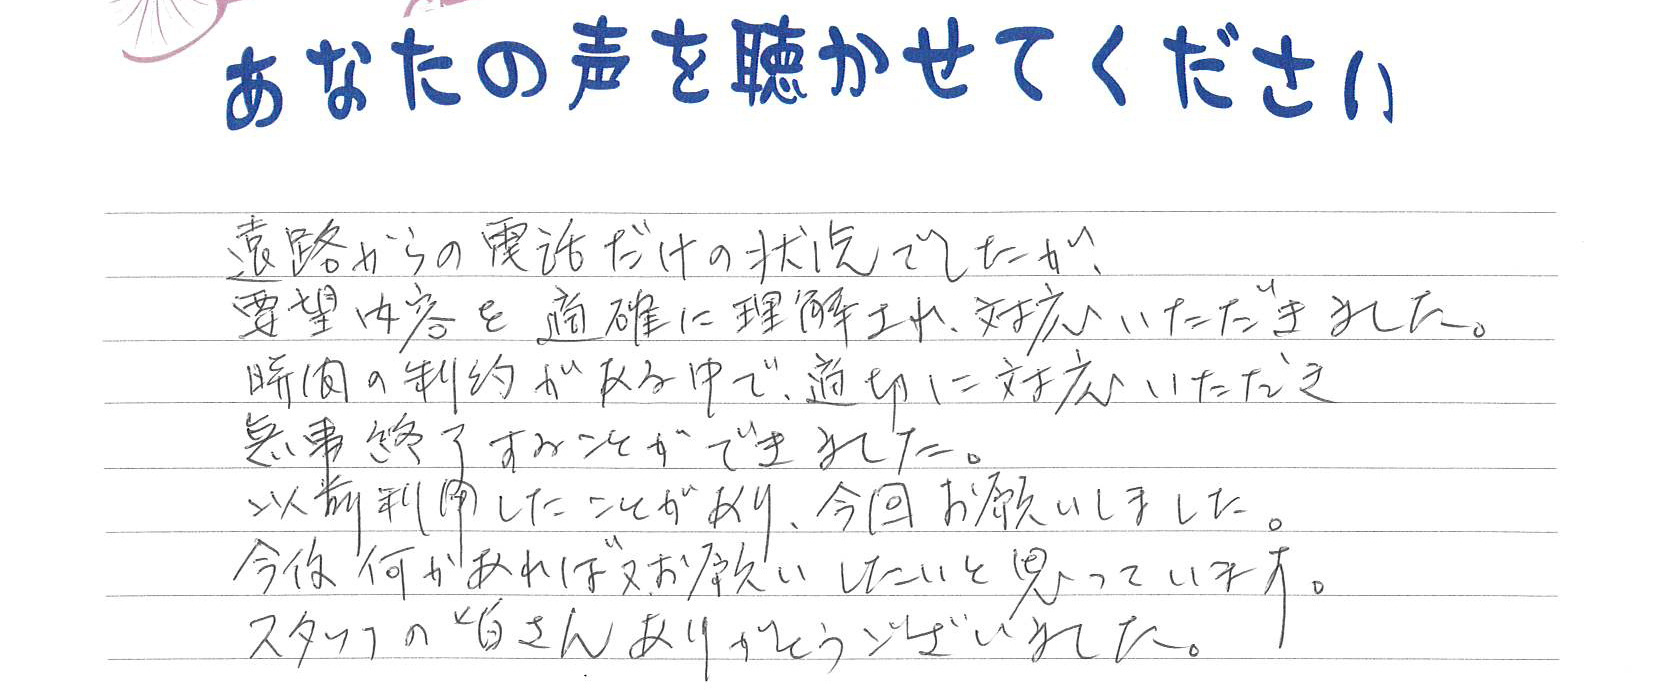 あなたの声を聴かせてください
遠路からの電話だけの状況でしたが、
要望内容を適確に理解され、対応いただきました。
時間の制約がある中で、適切に対応いただき
無事終了することができました。
以前利用したことがあり、今回お願いしました。
今後何かあれば又お願いしたいと思っています。
スタッフの皆さんありがとうございました。